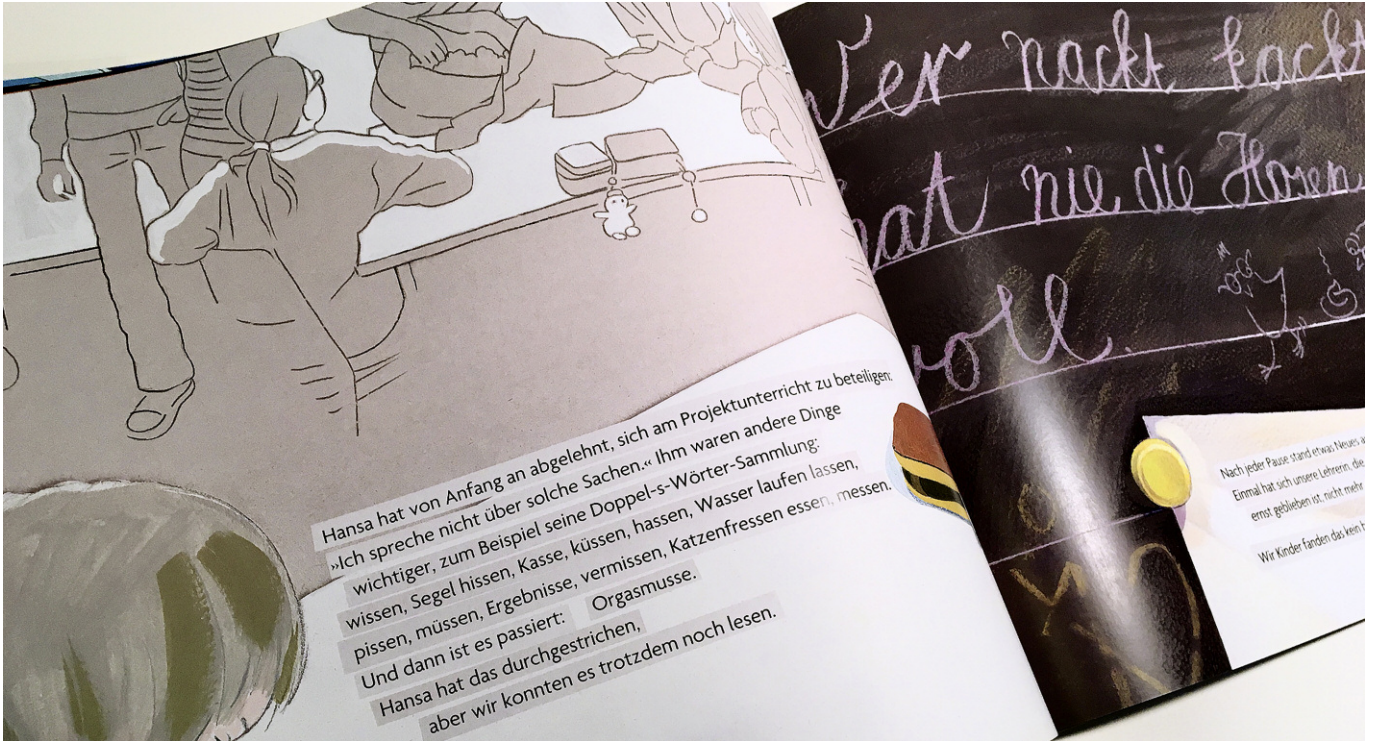 Hansa hat von Anfang an abgelehnt, sich am Projektunterricht zu beteiligen:
»Ich spreche nicht über solche Sachen.« Ihm waren andere Dinge
wichtiger, zum Beispiel seine Doppel-s-Wörter-Sammlung:
wissen, Segel hissen, Kasse, küssen, hassen, Wasser laufen lassen,
pissen, müssen, Ergebnisse, vermissen, Katzenfressen essen, messen.
Und dann ist es passiert: Orgasmusse.
Hansa hat das durchgestrichen,
aber wir konnten es trotzdem noch lesen.
Wer nackt kackt
hat nie die Hosen
voll.
Nach jeder Pause stand etwas Neues a
Einmal hat sich unsere Lehrerin, die
ernst geblieben ist, nicht mehr
Wir Kinder fanden das kein